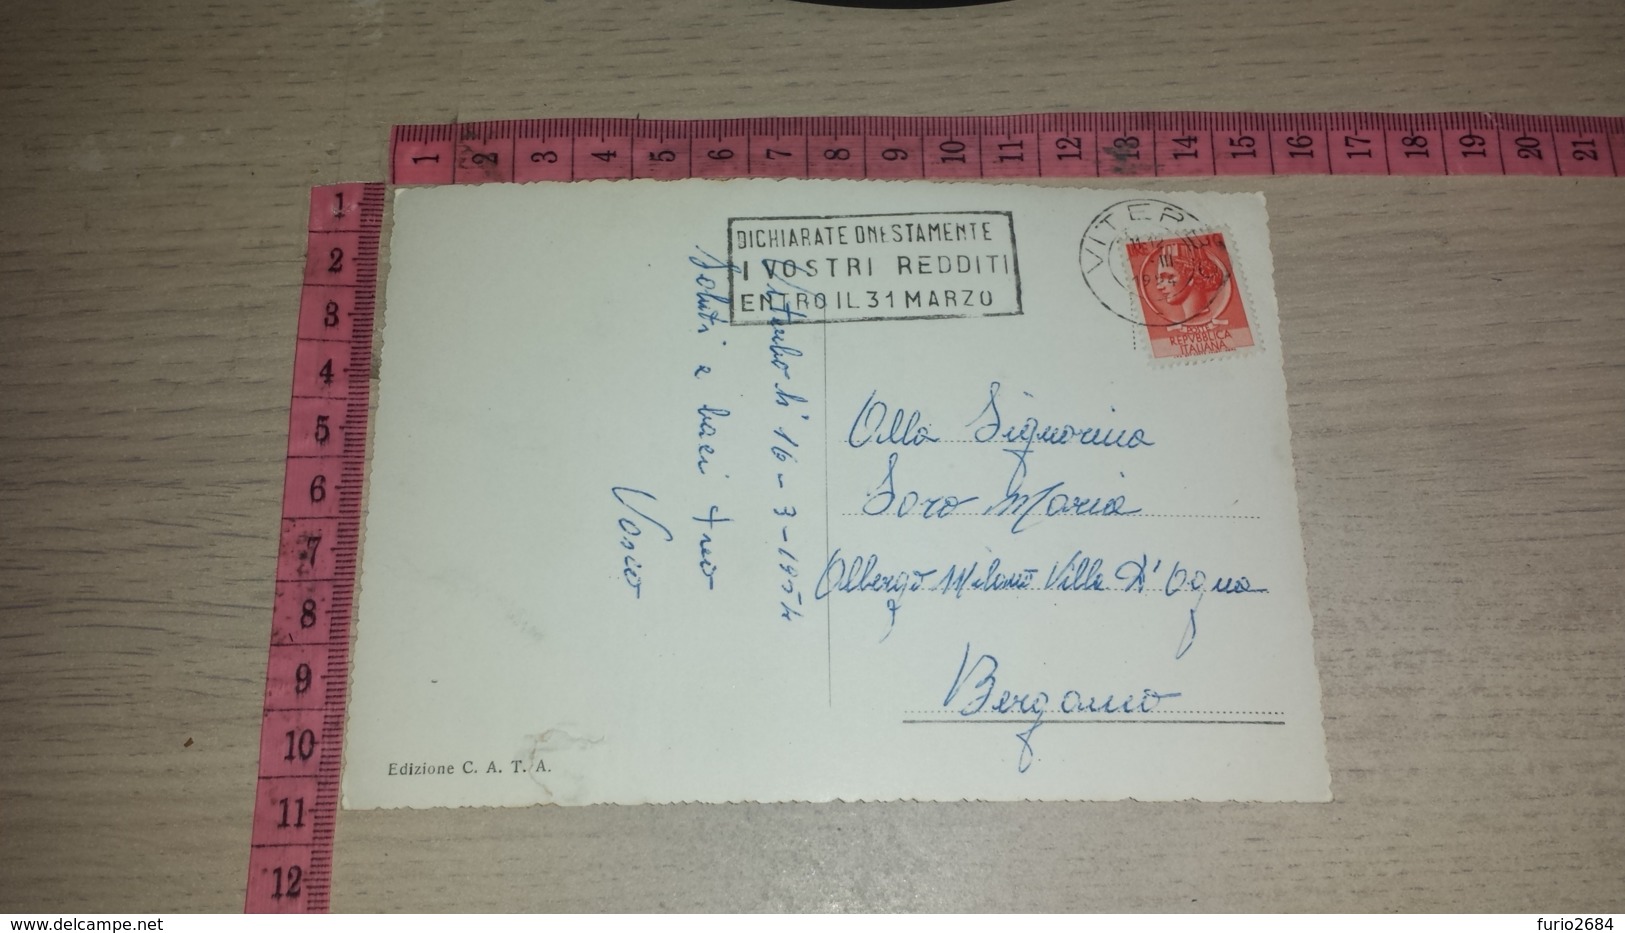 1 2 3 4 5 6 7 8 9 10 11 12 13 14 15 16 17 18 19 20 21
1
2
3
4
5
6
7
8
9
10
11
12
DICHIARATE ONESTAMENTE
I VOSTRI REDDITI
ENTRO IL 31 MARZO
VITER
III
POSTE
REPVBBLICA
ITALIANA
Viterbo li 16-3-1954
Saluti e baci
Vasco
Alla Signorina
Soro Maria
Albergo Milano Villa D'Ogna
Bergamo
Edizione C. A. T. A.
www.delcampe.net
furio2684